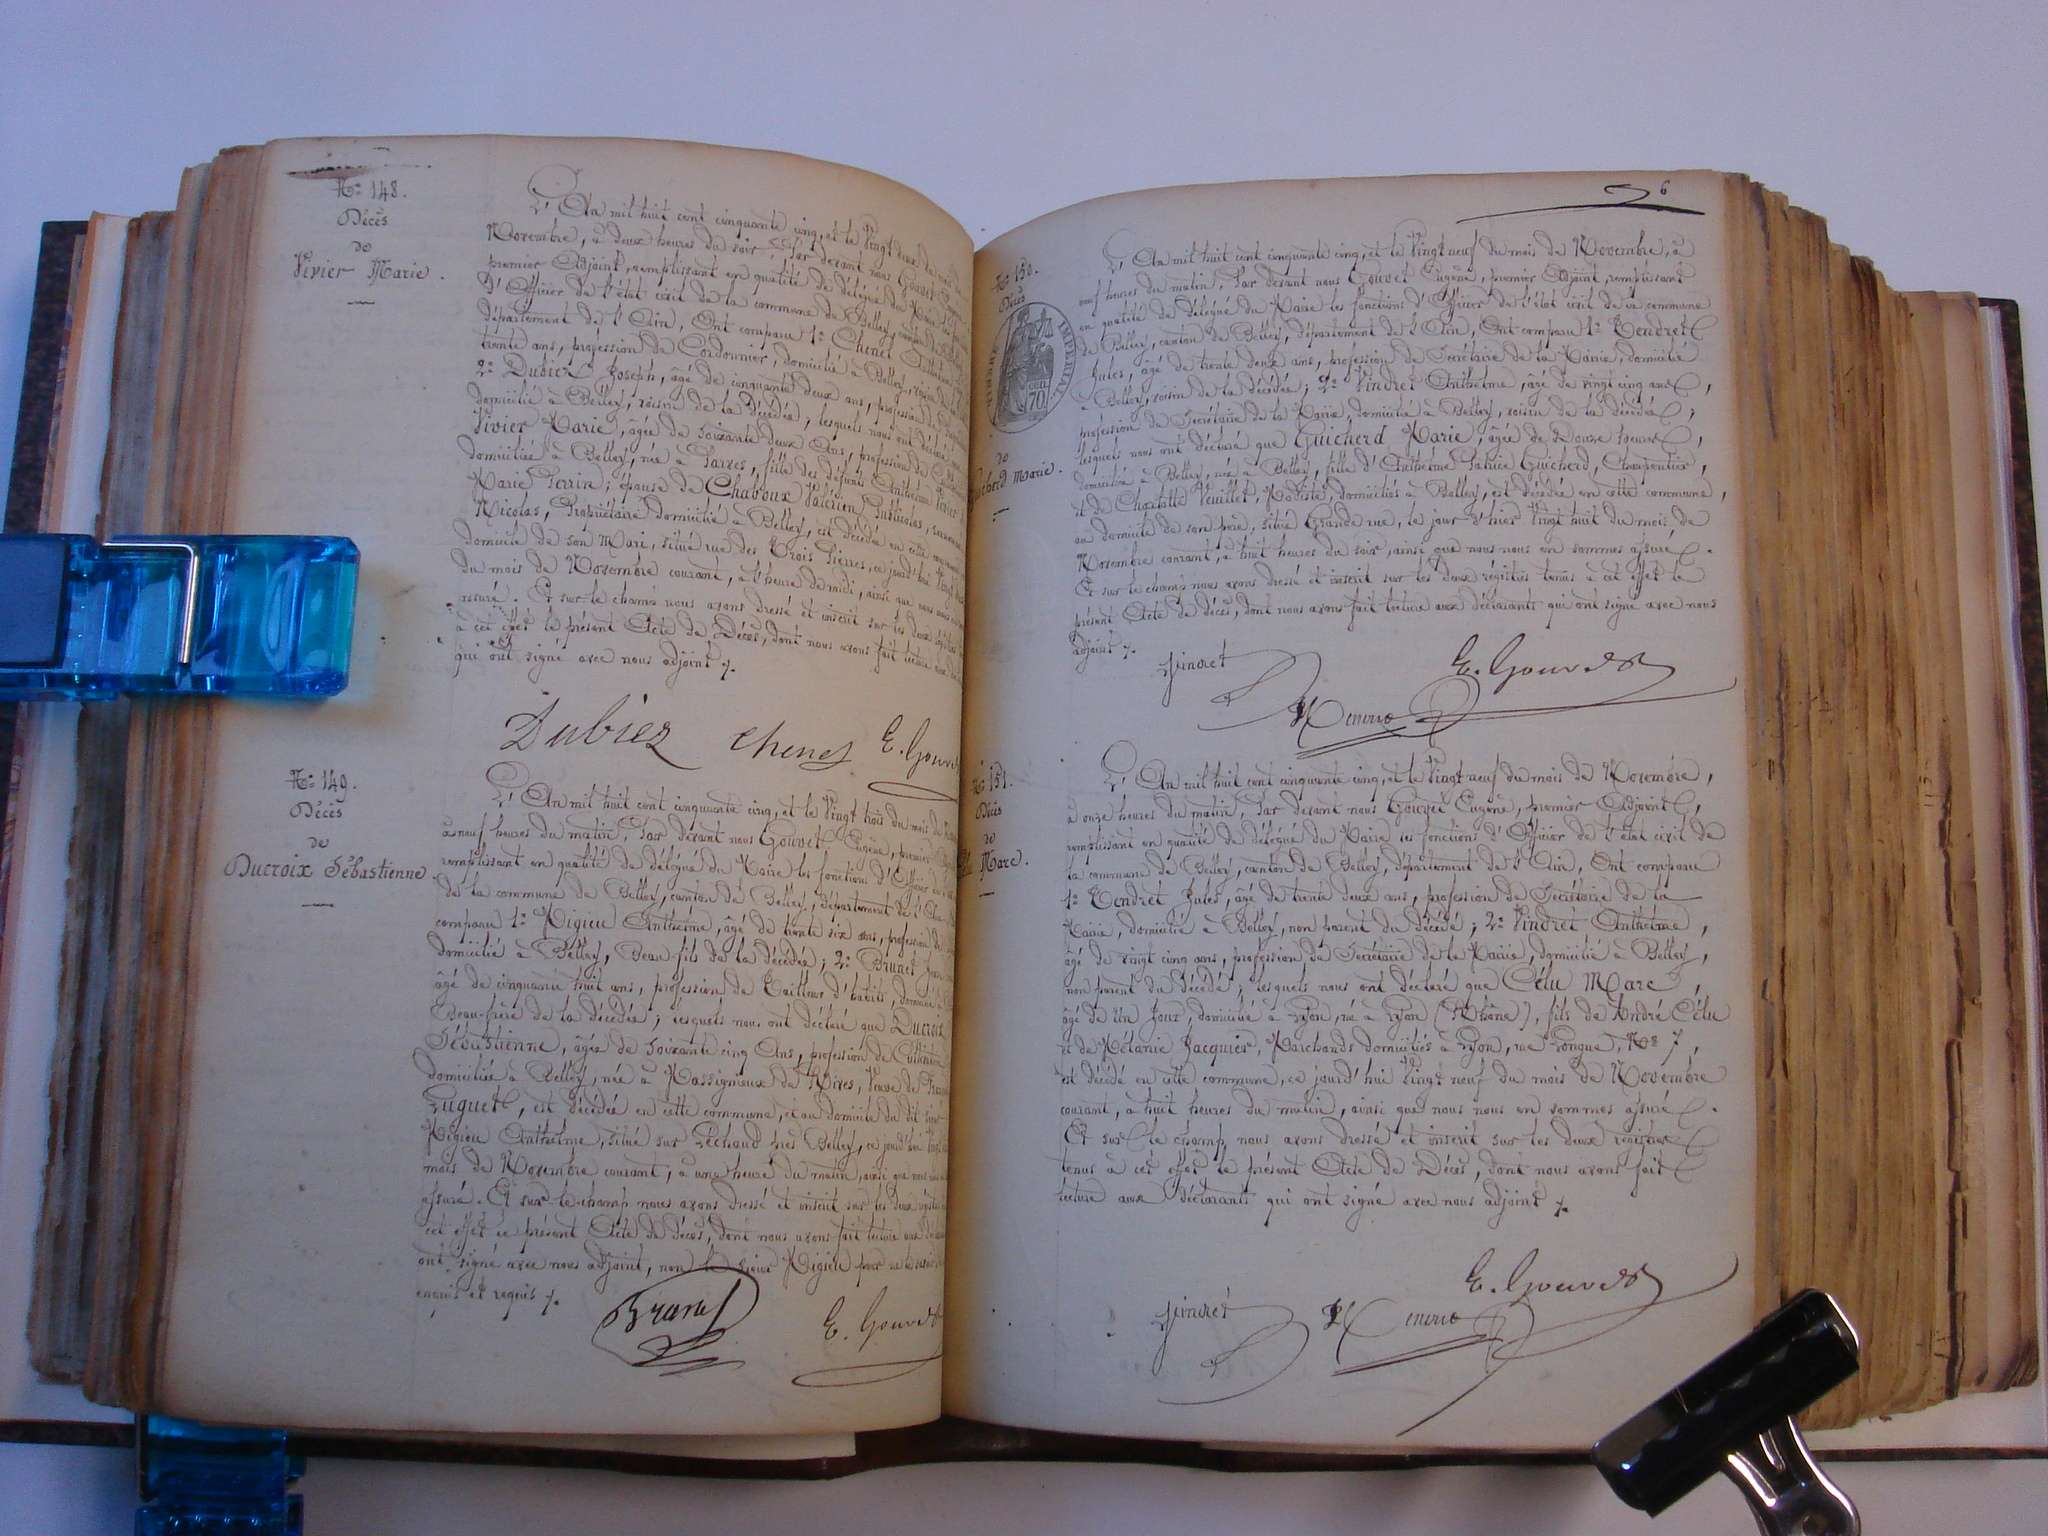 Nº 148.
Décès
de
Vivier Marie.
L'An mil huit cent cinquante cinq, et le Vingt deux du mois
Novembre, à deux heures du soir, Par devant nous Gouvet
premier Adjoint, remplissant en qualité de délégué du Maire
d'Officier de l'état civil de la commune de Belley, canton de
département de l'Ain, Ont comparu 1º Chenet
trente ans, profession de Cordonnier, domicilié à Belley, voisin de la
2º Dubiez Joseph, âgé de cinquante deux ans, profession de
domicilié à Belley, voisin de la décédée, lesquels nous ont déclaré que
Vivier Marie, âgée de soixante deux Ans, profession de
domiciliée à Belley, née à Parves, fille des défunts Anthelme Vivier
Marie Perrin; épouse de Chaboux Valérien
Nicolas, Propriétaire domicilié à Belley, est décédée en cette
domicile de son Mari, situé rue des Trois Pierres, ce jourd'hui
du mois de Novembre courant, à l'heure de midi, ainsi que nous
assuré. Et sur le champ nous avons dressé et inscrit sur les deux
à cet effet le présent Acte de Décès, dont nous avons fait lecture
qui ont signé avec nous adjoint ⁒.
Dubiez Chenet E. Gouvet
Nº 149.
Décès
de
Ducroix Sébastienne
L'An mil huit cent cinquante cinq, et le Vingt trois du mois de
à neuf heures du matin, Par devant nous Gouvet Eugène, premier
remplissant en qualité de délégué du Maire les fonctions d'Officier
de la commune de Belley, canton de Belley, département de l'Ain
comparu 1º Migieu Anthelme, âgé de trente six ans, profession de
domicilié à Belley, Beau-fils de la décédée; 2º Brunet
âgé de cinquante huit ans, profession de Tailleur d'habits, domicilié à
Beau-frère de la décédée; lesquels nous ont déclaré que Ducroix
Sébastienne, âgée de soixante cinq Ans, profession de
domiciliée à Belley, née à Massignieux de Rives, Veuve de
Luguet, est décédée en cette commune, et au domicile du dit
Migieu Anthelme, situé sur Léchaud près Belley, ce jourd'hui
mois de Novembre courant, à une heure du matin, ainsi que nous
assuré. Et sur le-champ nous avons dressé et inscrit sur les deux
cet effet le présent Acte de décès, dont nous avons fait lecture aux
ont signé avec nous adjoint, non le sieur Migieu pour ne le
enquis et requis ⁒.
Brunet E. Gouvet
6
Nº 150.
Décès
de
Guicherd Marie.
TIMBRE IMPERIAL
70
L'An mil huit cent cinquante cinq, et le Vingt neuf du mois de Novembre, à
neuf heures du matin, Par devant nous Gouvet Eugène, premier Adjoint, remplissant
en qualité de délégué du Maire les fonctions d'Officier de l'état civil de la commune
de Belley, canton de Belley, département de l'Ain, Ont comparu 1º Tendret
Jules, âgé de trente deux ans, profession de Secrétaire de la Mairie, domicilié
à Belley, voisin de la décédée; 2º Vindret Anthelme, âgé de vingt cinq ans,
profession de Secrétaire de la Mairie, domicilié à Belley, voisin de la décédée;
lesquels nous ont déclaré que Guicherd Marie, âgée de Douze heures,
domicilié à Belley, née à Belley, fille d'Anthelme Patrice Guicherd, Charpentier,
et de Charlotte Veuillet, Modiste, domiciliés à Belley, est décédée en cette commune,
au domicile de son père, situé Grande rue, le jour d'hier Vingt huit du mois de
Novembre courant, à huit heures du soir, ainsi que nous nous en sommes assuré.
Et sur le champ nous avons dressé et inscrit sur les deux registres tenus à cet effet le
présent Acte de décès, dont nous avons fait lecture aux déclarants qui ont signé avec nous
adjoint ⁒.
Vindret E. Gouvet
Nº 151.
Décès
de
Célu Marc.
L'An mil huit cent cinquante cinq, et le Vingt neuf du mois de Novembre,
à onze heures du matin, Par devant nous Gouvet Eugène, premier Adjoint,
remplissant en qualité de délégué du Maire les fonctions d'Officier de l'état civil de
la commune de Belley, canton de Belley, département de l'Ain, Ont comparu
1º Tendret Jules, âgé de trente deux ans, profession de Secrétaire de la
Mairie, domicilié à Belley, non parent du décédé; 2º Vindret Anthelme,
âgé de vingt cinq ans, profession de Secrétaire de la Mairie, domicilié à Belley,
non parent du décédé; lesquels nous ont déclaré que Célu Marc,
âgé de Un Jour, domicilié à Lyon, né à Lyon (Rhône), fils de André Célu
et de Mélanie Jacquier, Marchands domiciliés à Lyon, rue Longue, Nº 7,
est décédé en cette commune, ce jourd'hui Vingt neuf du mois de Novembre
courant, à huit heures du matin, ainsi que nous nous en sommes assuré.
Et sur le champ, nous avons dressé et inscrit sur les deux registres
tenus à cet effet le présent Acte de Décès, dont nous avons fait
lecture aux déclarants qui ont signé avec nous adjoint ⁒.
Vindret E. Gouvet